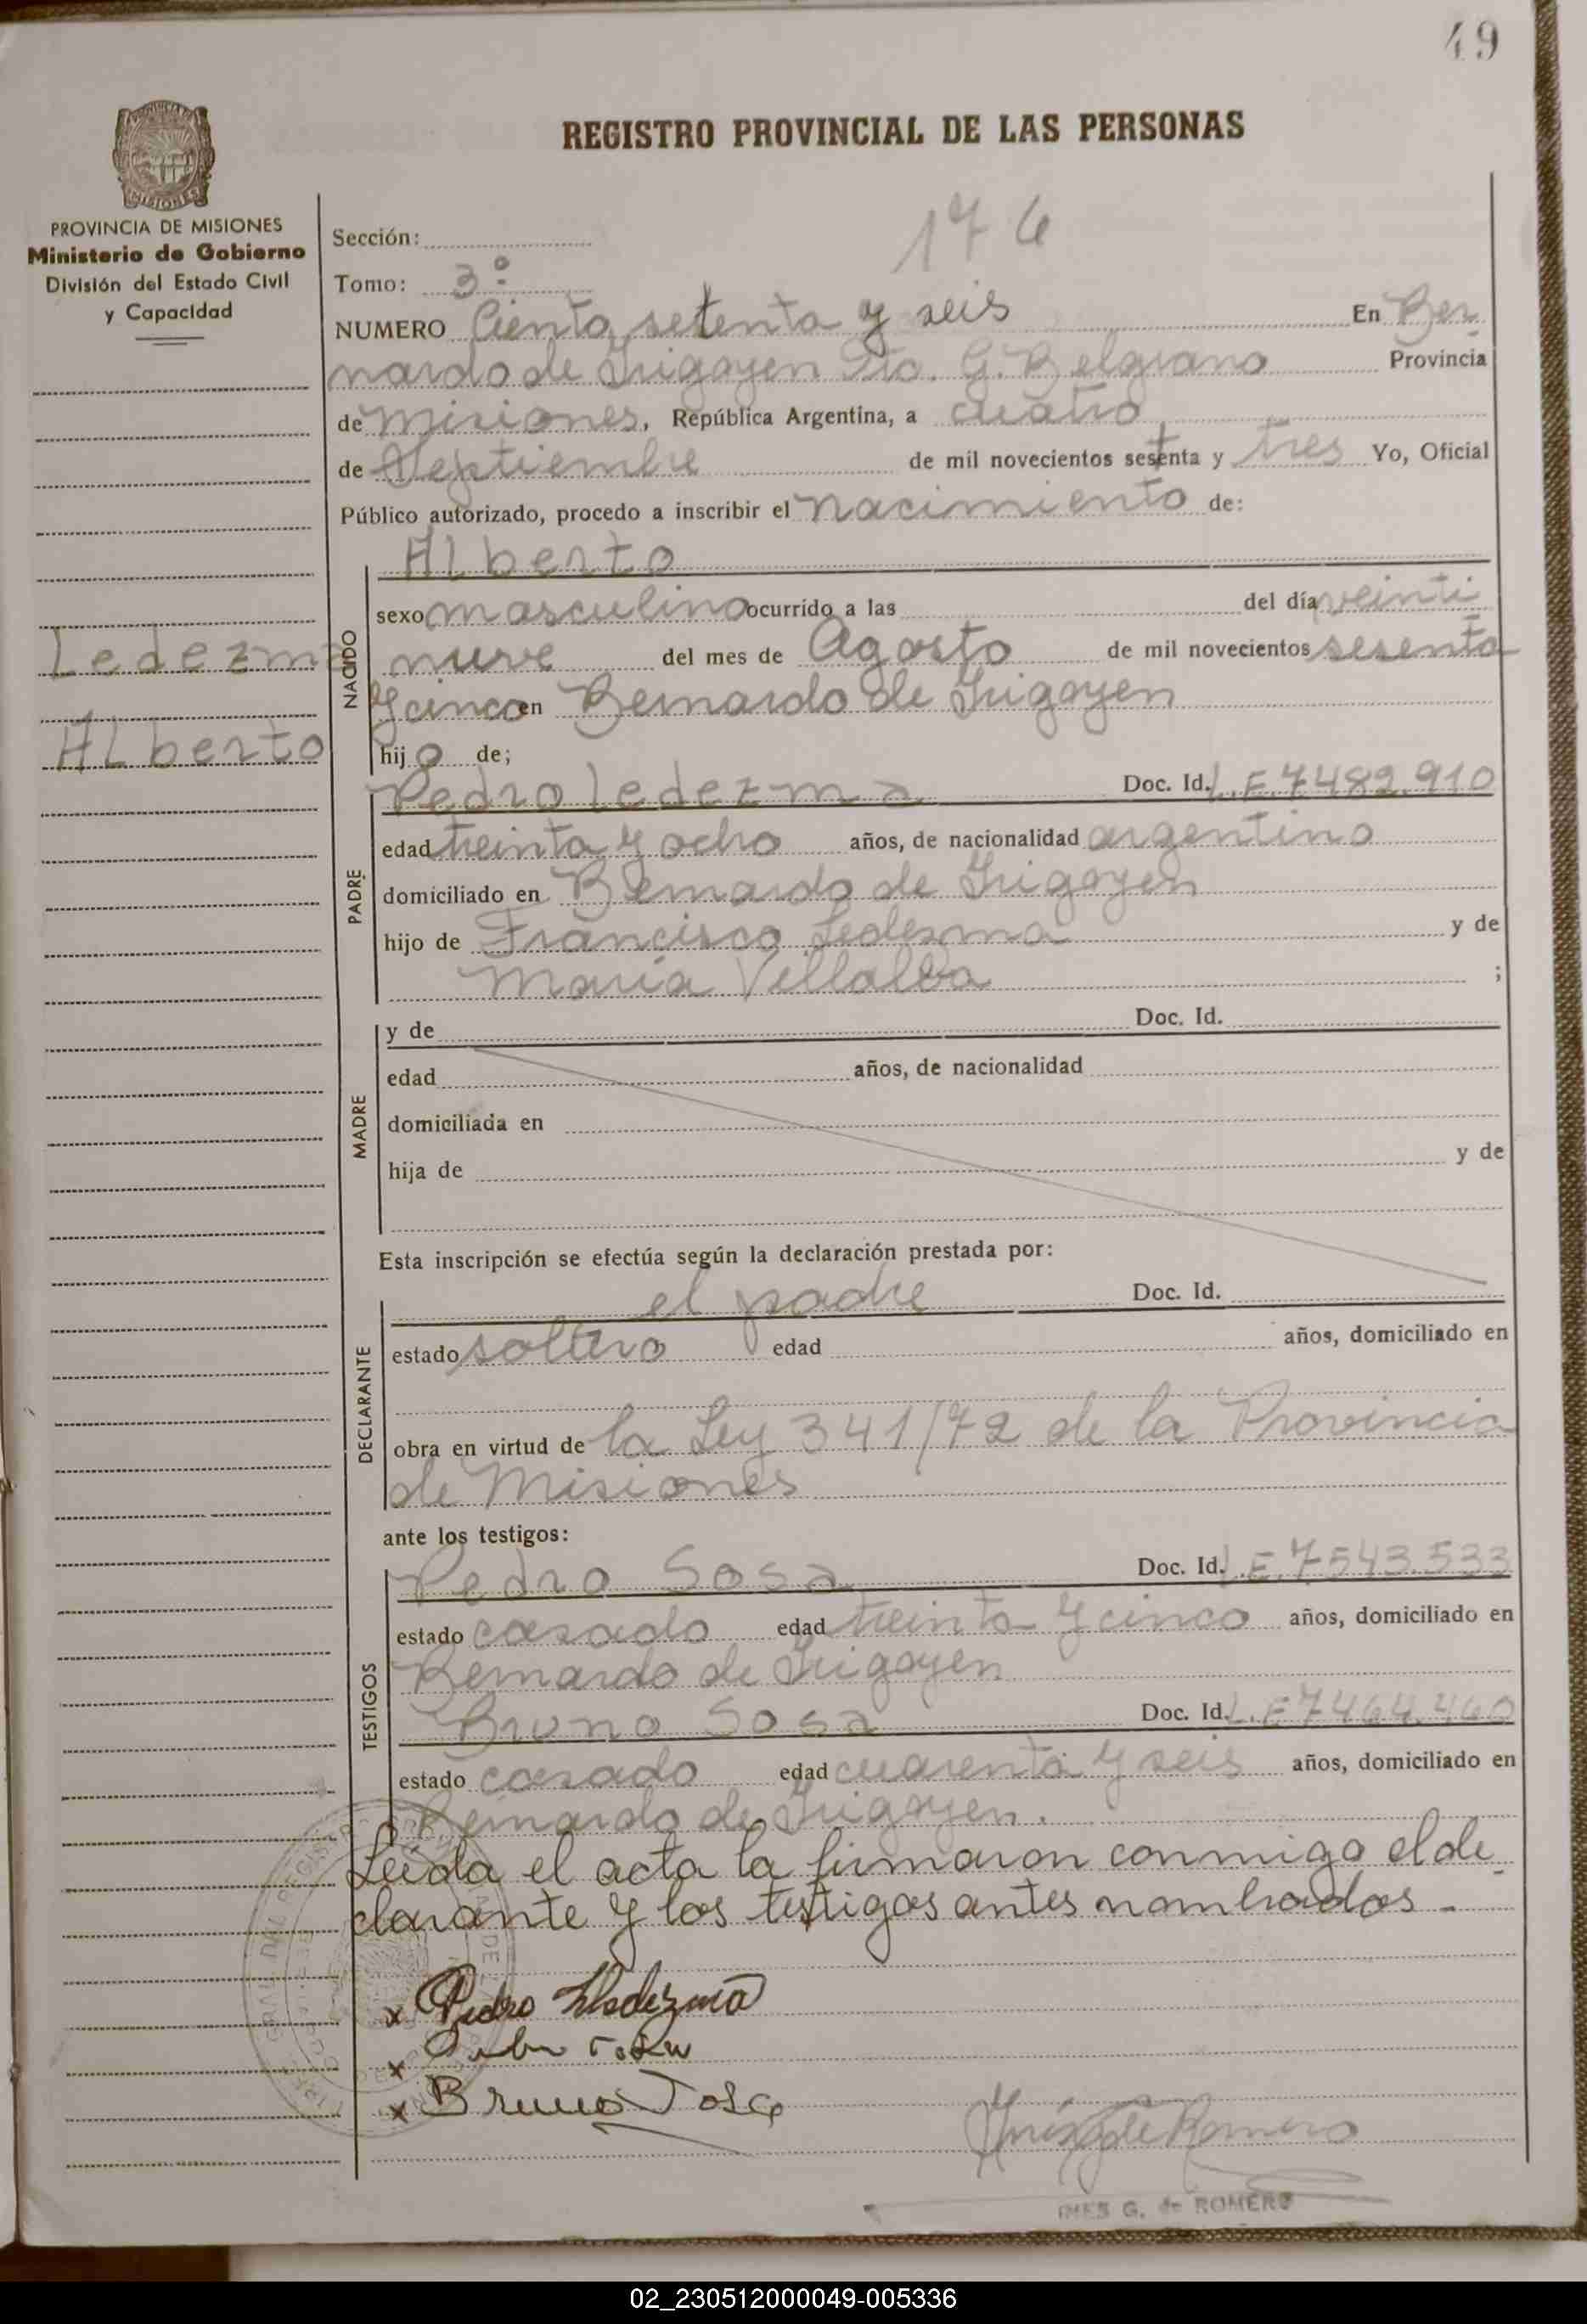 49
REGISTRO PROVINCIAL DE LAS PERSONAS
PROVINCIA DE MISIONES
Ministerio de Gobierno
División del Estado Civil
y Capacidad
176
Sección:
Tomo: 3º
NUMERO Ciento setenta y seis En Ber
nardo de Irigoyen Pto. G. Belgrano Provincia
de Misiones, República Argentina, a cuatro
de Septiembre de mil novecientos setenta y tres Yo, Oficial
Público autorizado, procedo a inscribir el nacimiento de:
Alberto
NACIDO
sexo masculino ocurrido a las del día veinti
Ledezma
nueve del mes de Agosto de mil novecientos sesenta
y cinco en Bernardo de Irigoyen
Alberto
hijo de;
PADRE
Pedro Ledezma Doc. Id. L.E. 7.482.910
edad treinta y ocho años, de nacionalidad argentino
domiciliado en Bernardo de Irigoyen
hijo de Francisco Ledezma y de
Maria Villalba ;
MADRE
y de Doc. Id.
edad años, de nacionalidad
domiciliada en
hija de y de
Esta inscripción se efectúa según la declaración prestada por:
DECLARANTE
el padre Doc. Id.
estado soltero edad años, domiciliado en
obra en virtud de la Ley 341/72 de la Provincia
de Misiones
ante los testigos:
TESTIGOS
Pedro Sosa Doc. Id. L.E. 7.543.533
estado casado edad treinta y cinco años, domiciliado en
Bernardo de Irigoyen
Bruno Sosa Doc. Id. L.E 7464.460
estado casado edad cuarenta y seis años, domiciliado en
Bernardo de Irigoyen.
Leída el acta la firmaron conmigo el de
clarante y los testigos antes nombrados.
x Pedro Ledezma
x
x Bruno Sosa
Inés G de Romero
INES G. de ROMERO
02_230512000049-005336